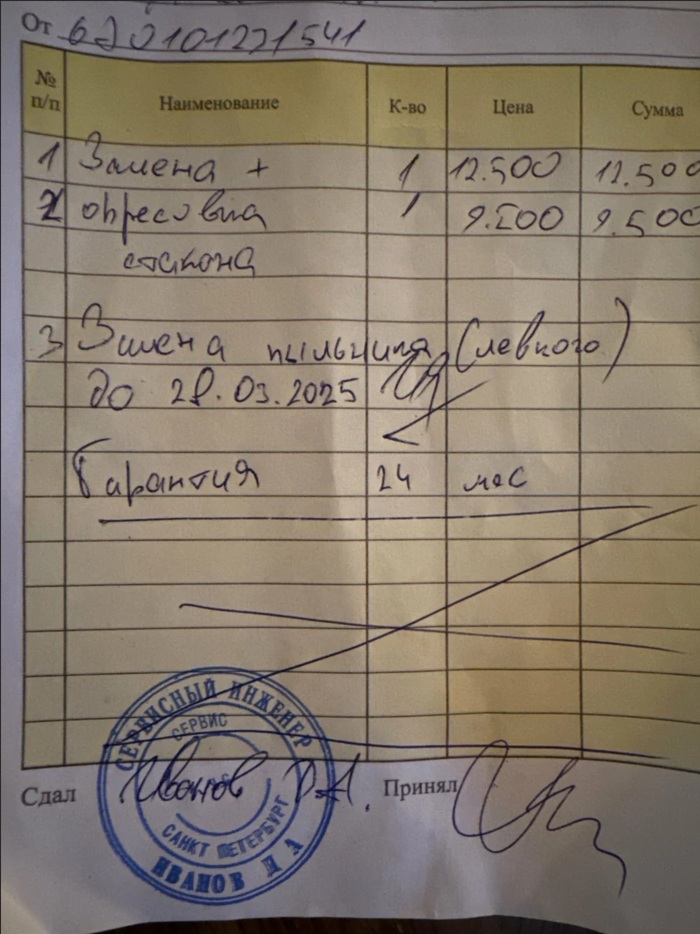 От 620101271541
№ п/п Наименование К-во Цена Сумма
1 Замена + 1 12.500 12.500
2 опрессовка 1 9.500 9.500
стакана
3 Замена пыльника (левого)
до 28.03.2025
Гарантия 24 мес
СЕРВИСНЫЙ ИНЖЕНЕР
СЕРВИС
САНКТ ПЕТЕРБУРГ
ИВАНОВ Д А
Сдал Иванов Д.А. Принял